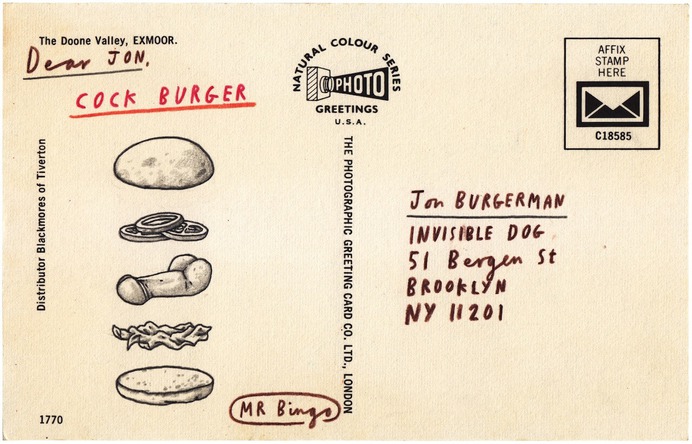 The Doone Valley, EXMOOR.
Dear JON,
COCK BURGER
Distributor Blackmores of Tiverton
1770
MR Bingo
NATURAL COLOUR SERIES
PHOTO
GREETINGS
U.S.A.
THE PHOTOGRAPHIC GREETING CARD CO. LTD., LONDON
AFFIX
STAMP
HERE
C18585
Jon BURGERMAN
INVISIBLE DOG
51 Bergen St
BROOKLYN
NY 11201